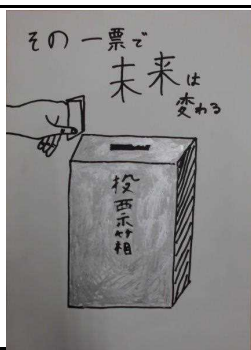 その一票で
未来は
変わる
投票箱